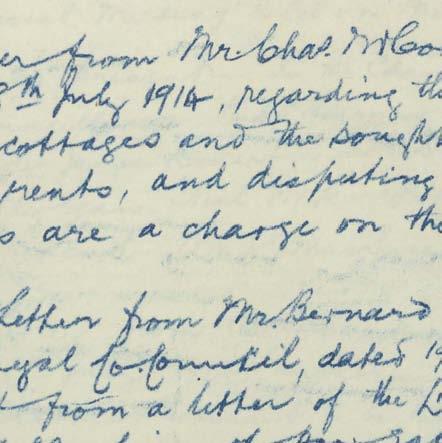 er from Mr. Chas. McCo
8th July 1914, regarding th
cottages and the sought
rents, and disputing
s are a charge on the
Letter from Mr. Bernard
egal Co Council, dated 19
t from a letter of the L